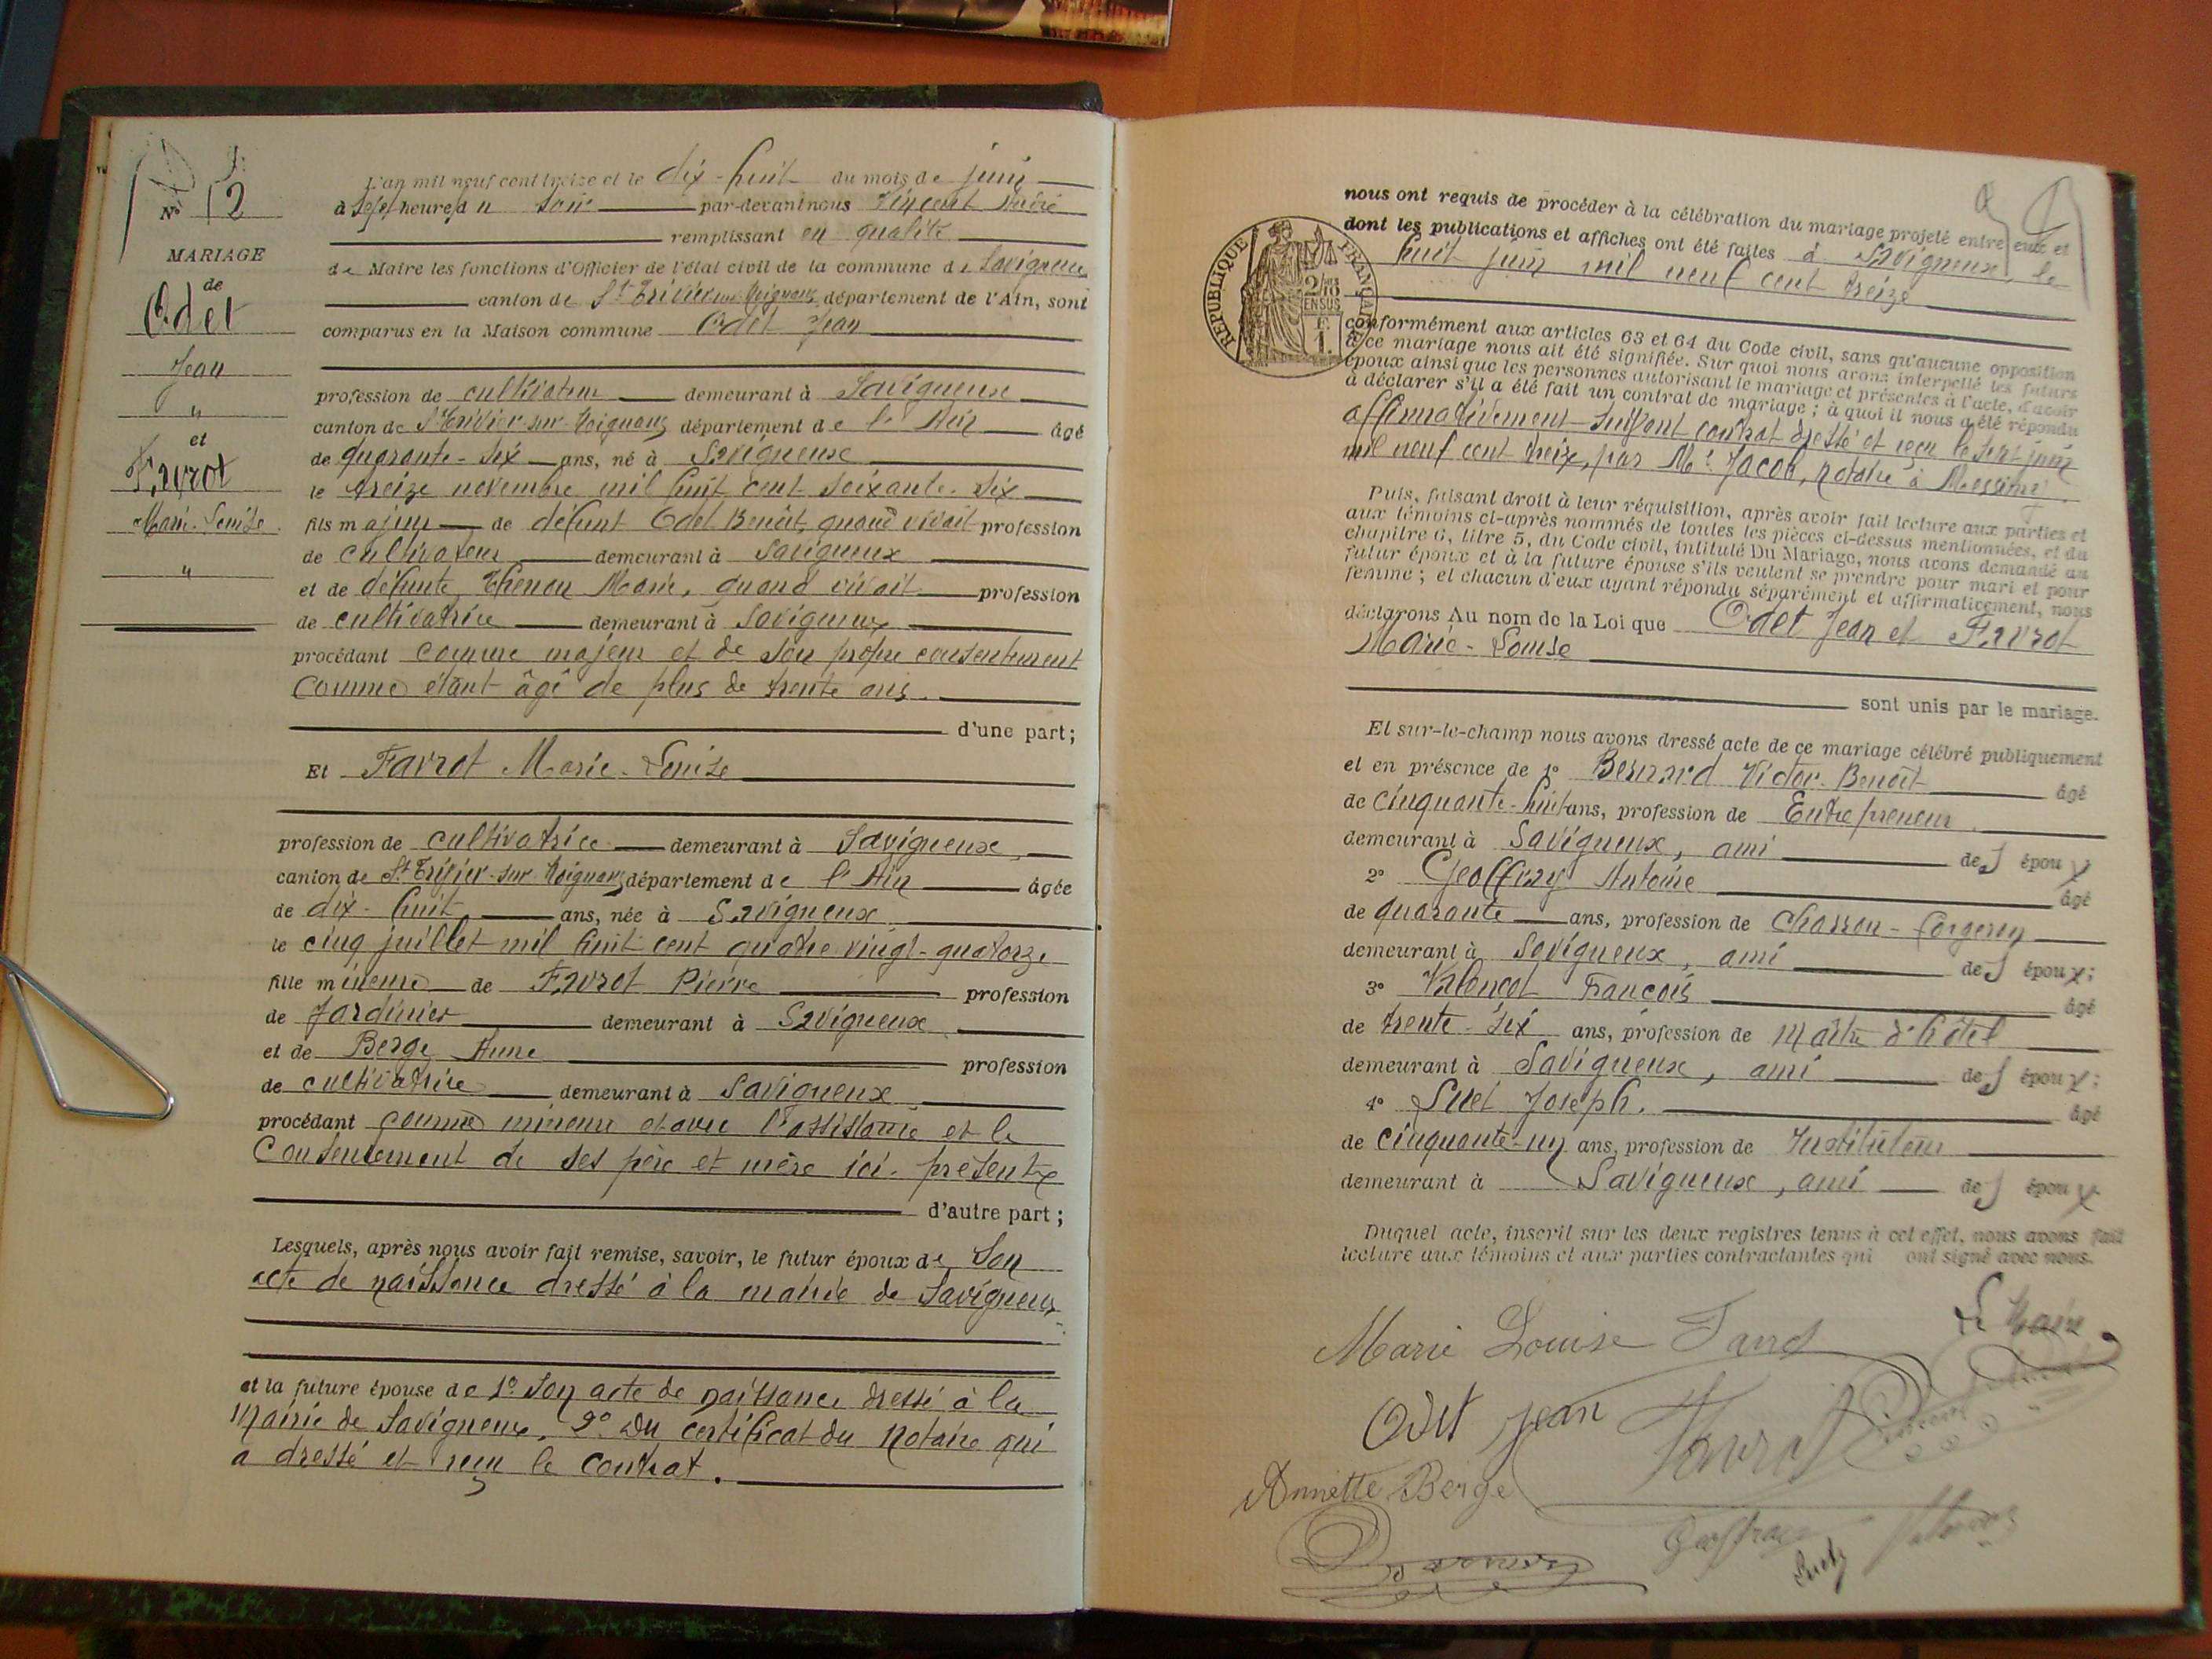 N° 2
MARIAGE
de
Odet
Jean
"
et
Favrot
Marie-Louise
"
L'an mil neuf cent treize et le dix-huit du mois de juin
à sept heures du soir par-devant nous Vincent André
remplissant en qualité
de Maire les fonctions d'Officier de l'état civil de la commune de Savigneux
canton de St Trivier-sur-Moignans département de l'Ain, sont
comparus en la Maison commune Odet Jean
profession de cultivateur demeurant à Savigneux
canton de St Trivier-sur-Moignans département de l'Ain âgé
de quarante-six ans, né à Savigneux
le treize novembre mil huit cent soixante-six
fils majeur de défunt Odet Benoît, quand vivait profession
de cultivateur demeurant à Savigneux
et de défunte Thenon Marie, quand vivait profession
de cultivatrice demeurant à Savigneux
procédant comme majeur et de son propre consentement
comme étant âgé de plus de trente ans.
d'une part;
Et Favrot Marie-Louise
profession de cultivatrice demeurant à Savigneux,
canton de St Trivier-sur-Moignans département de l'Ain âgée
de dix-huit ans, née à Savigneux
le cinq juillet mil huit cent quatre-vingt-quatorze
fille mineure de Favrot Pierre profession
de Jardinier demeurant à Savigneux
et de Berge Anne profession
de cultivatrice demeurant à Savigneux
procédant comme mineure et avec l'assistance et le
consentement de ses père et mère ici-présents
d'autre part;
Lesquels, après nous avoir fait remise, savoir, le futur époux de Son
acte de naissance dressé à la mairie de Savigneux
et la future épouse de 1° Son acte de naissance dressé à la
Mairie de Savigneux, 2° Du certificat du Notaire qui
a dressé et reçu le contrat.
nous ont requis de procéder à la célébration du mariage projeté entre eux et
dont les publications et affiches ont été faites à Savigneux, le
huit juin mil neuf cent treize
RÉPUBLIQUE FRANÇAISE
2/10 EN SUS
F. 1.
conformément aux articles 63 et 64 du Code civil, sans qu'aucune opposition
à ce mariage nous ait été signifiée. Sur quoi nous avons interpellé les futurs
époux ainsi que les personnes autorisant le mariage et présentes à l'acte, d'avoir
à déclarer s'il a été fait un contrat de mariage; à quoi il nous a été répondu
affirmativement suivant contrat dressé et reçu le sept juin
mil neuf cent treize, par Me Jacob, notaire à Messimy.
Puis, faisant droit à leur réquisition, après avoir fait lecture aux parties et
aux témoins ci-après nommés de toutes les pièces ci-dessus mentionnées, et du
chapitre 6, titre 5, du Code civil, intitulé Du Mariage, nous avons demandé au
futur époux et à la future épouse s'ils veulent se prendre pour mari et pour
femme; et chacun d'eux ayant répondu séparément et affirmativement, nous
déclarons Au nom de la Loi que Odet Jean et Favrot
Marie-Louise
sont unis par le mariage.
Et sur-le-champ nous avons dressé acte de ce mariage célébré publiquement
et en présence de 1° Bernard Victor-Benoît âgé
de cinquante-huit ans, profession de Entrepreneur
demeurant à Savigneux, ami des époux
2° Geoffray Antoine âgé
de quarante ans, profession de Charron-forgeron
demeurant à Savigneux, ami des époux;
3° Valencot François âgé
de trente-six ans, profession de Maître d'hôtel
demeurant à Savigneux, ami des époux;
4° Suet Joseph. âgé
de cinquante-un ans, profession de Instituteur
demeurant à Savigneux, ami des époux
Duquel acte, inscrit sur les deux registres tenus à cet effet, nous avons fait
lecture aux témoins et aux parties contractantes qui ont signé avec nous.
Le Maire
Marie Louise Favrot
Odet Jean
Favrot
Annette Berge
Geoffray
Suet